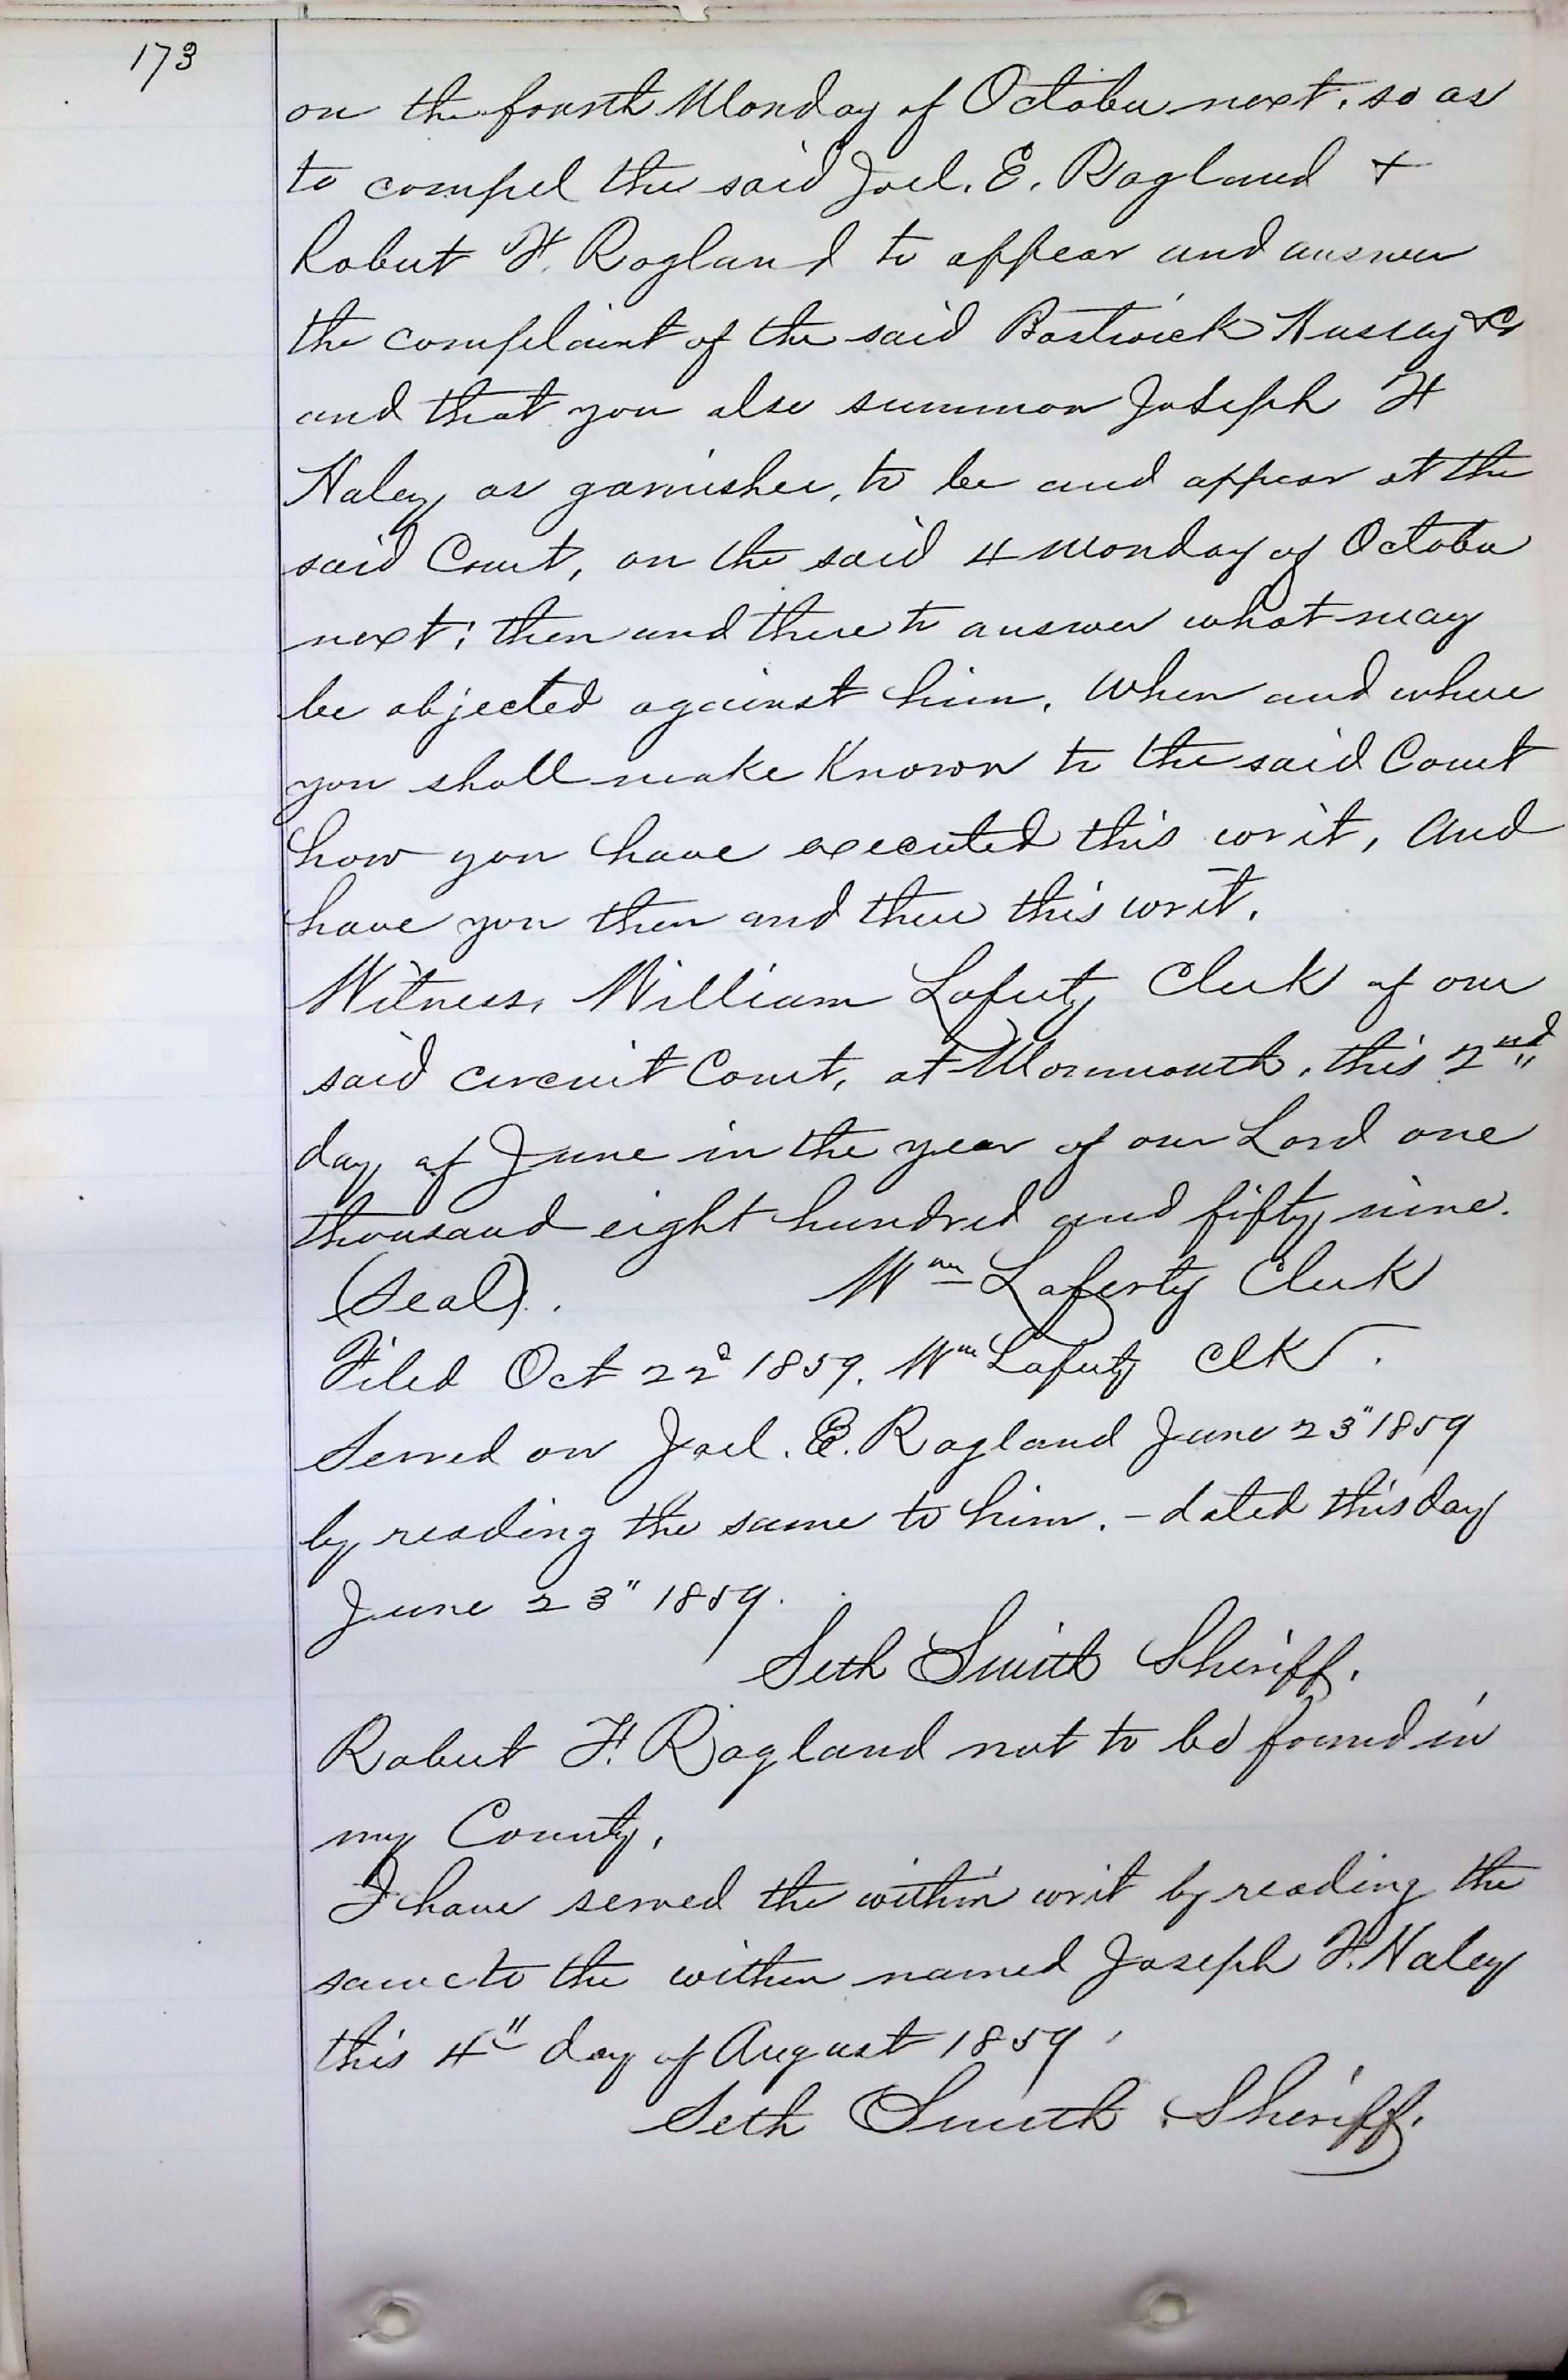 173
on the fourth Monday of October next. so as
to compel the said Joel. E. Ragland +
Robert F. Ragland to appear and answer
the complaint of the said Bostwick Hussey &c
and that you also summon Joseph F
Haley, as garnishee, to be and appear at the
said Court, on the said 4 Monday of October
next; then and there to answer what may
be objected against him. When and where
you shall make Known to the said Court
how you have executed this writ, And
have you then and there this writ.
Witness, William Laferty Clerk of our
said circuit Court, at Monmouth, this 2nd
day of June in the year of our Lord one
thousand eight hundred and fifty nine.
(Seal). Wm Laferty Clerk
Filed Oct 22d 1859. Wm Laferty ClK.
Served on Joel. E. Ragland June 23" 1859
by reading the same to him. - dated this day
June 23" 1859.
Seth Smith Sheriff.
Robert F. Ragland not to be found in
my County.
I have served the within writ by reading the
same to the within named Joseph F. Haley
this 4" day of August 1859.
Seth Smith Sheriff.